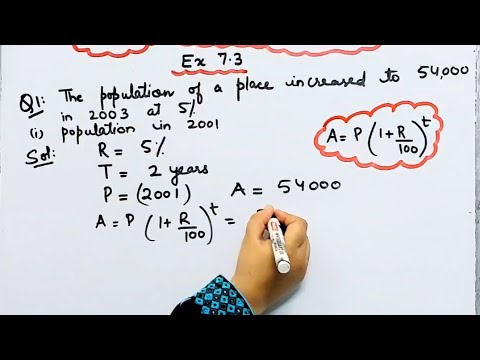 Ex 7.3
Q1: The population of a place increased to 54,000
in 2003 at 5%
(i) population in 2001
Sol:
R = 5%
T = 2 years
P = (2001) A = 54000
A = P (1 + R/100)^t =
A = P (1 + R/100)^t